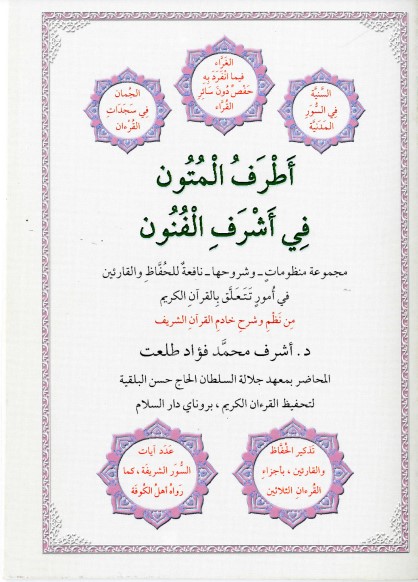 السَّنِيَّة
فِي السُّوَرِ
المَدَنِيَّة
الغَرَّاء
فيما انْفَرَدَ بِهِ
حَفْصٌ دُونَ سَائِرِ
القُرَّاء
الجُمان
فِي سَجَدَاتِ
القُرْءان
أَطْرَفُ الْمُتُون
فِي أَشْرَفِ الْفُنُون
مجموعة منظوماتٍ ـ وشروحها ـ نافعةٌ للحُفَّاظِ والقارئين
في أُمورٍ تَتَعَلَّق بِالقرآنِ الكريم
مِن نَظْمِ وشرحِ خادمِ القرآنِ الشريف
د. أشرف محمَّد فؤاد طلعت
المحاضر بمعهد جلالة السلطان الحاج حسن البلقية
لتحفيظ القرءان الكريم ، بروناي دار السلام
تَذكير الحُفَّاظ
والقارئين ، بأجزاءِ
القُرءانِ الثلاثين
عَدَد آيات
السُّوَر الشريفَة ، كما
رَواهُ أهلُ الكُوفَة